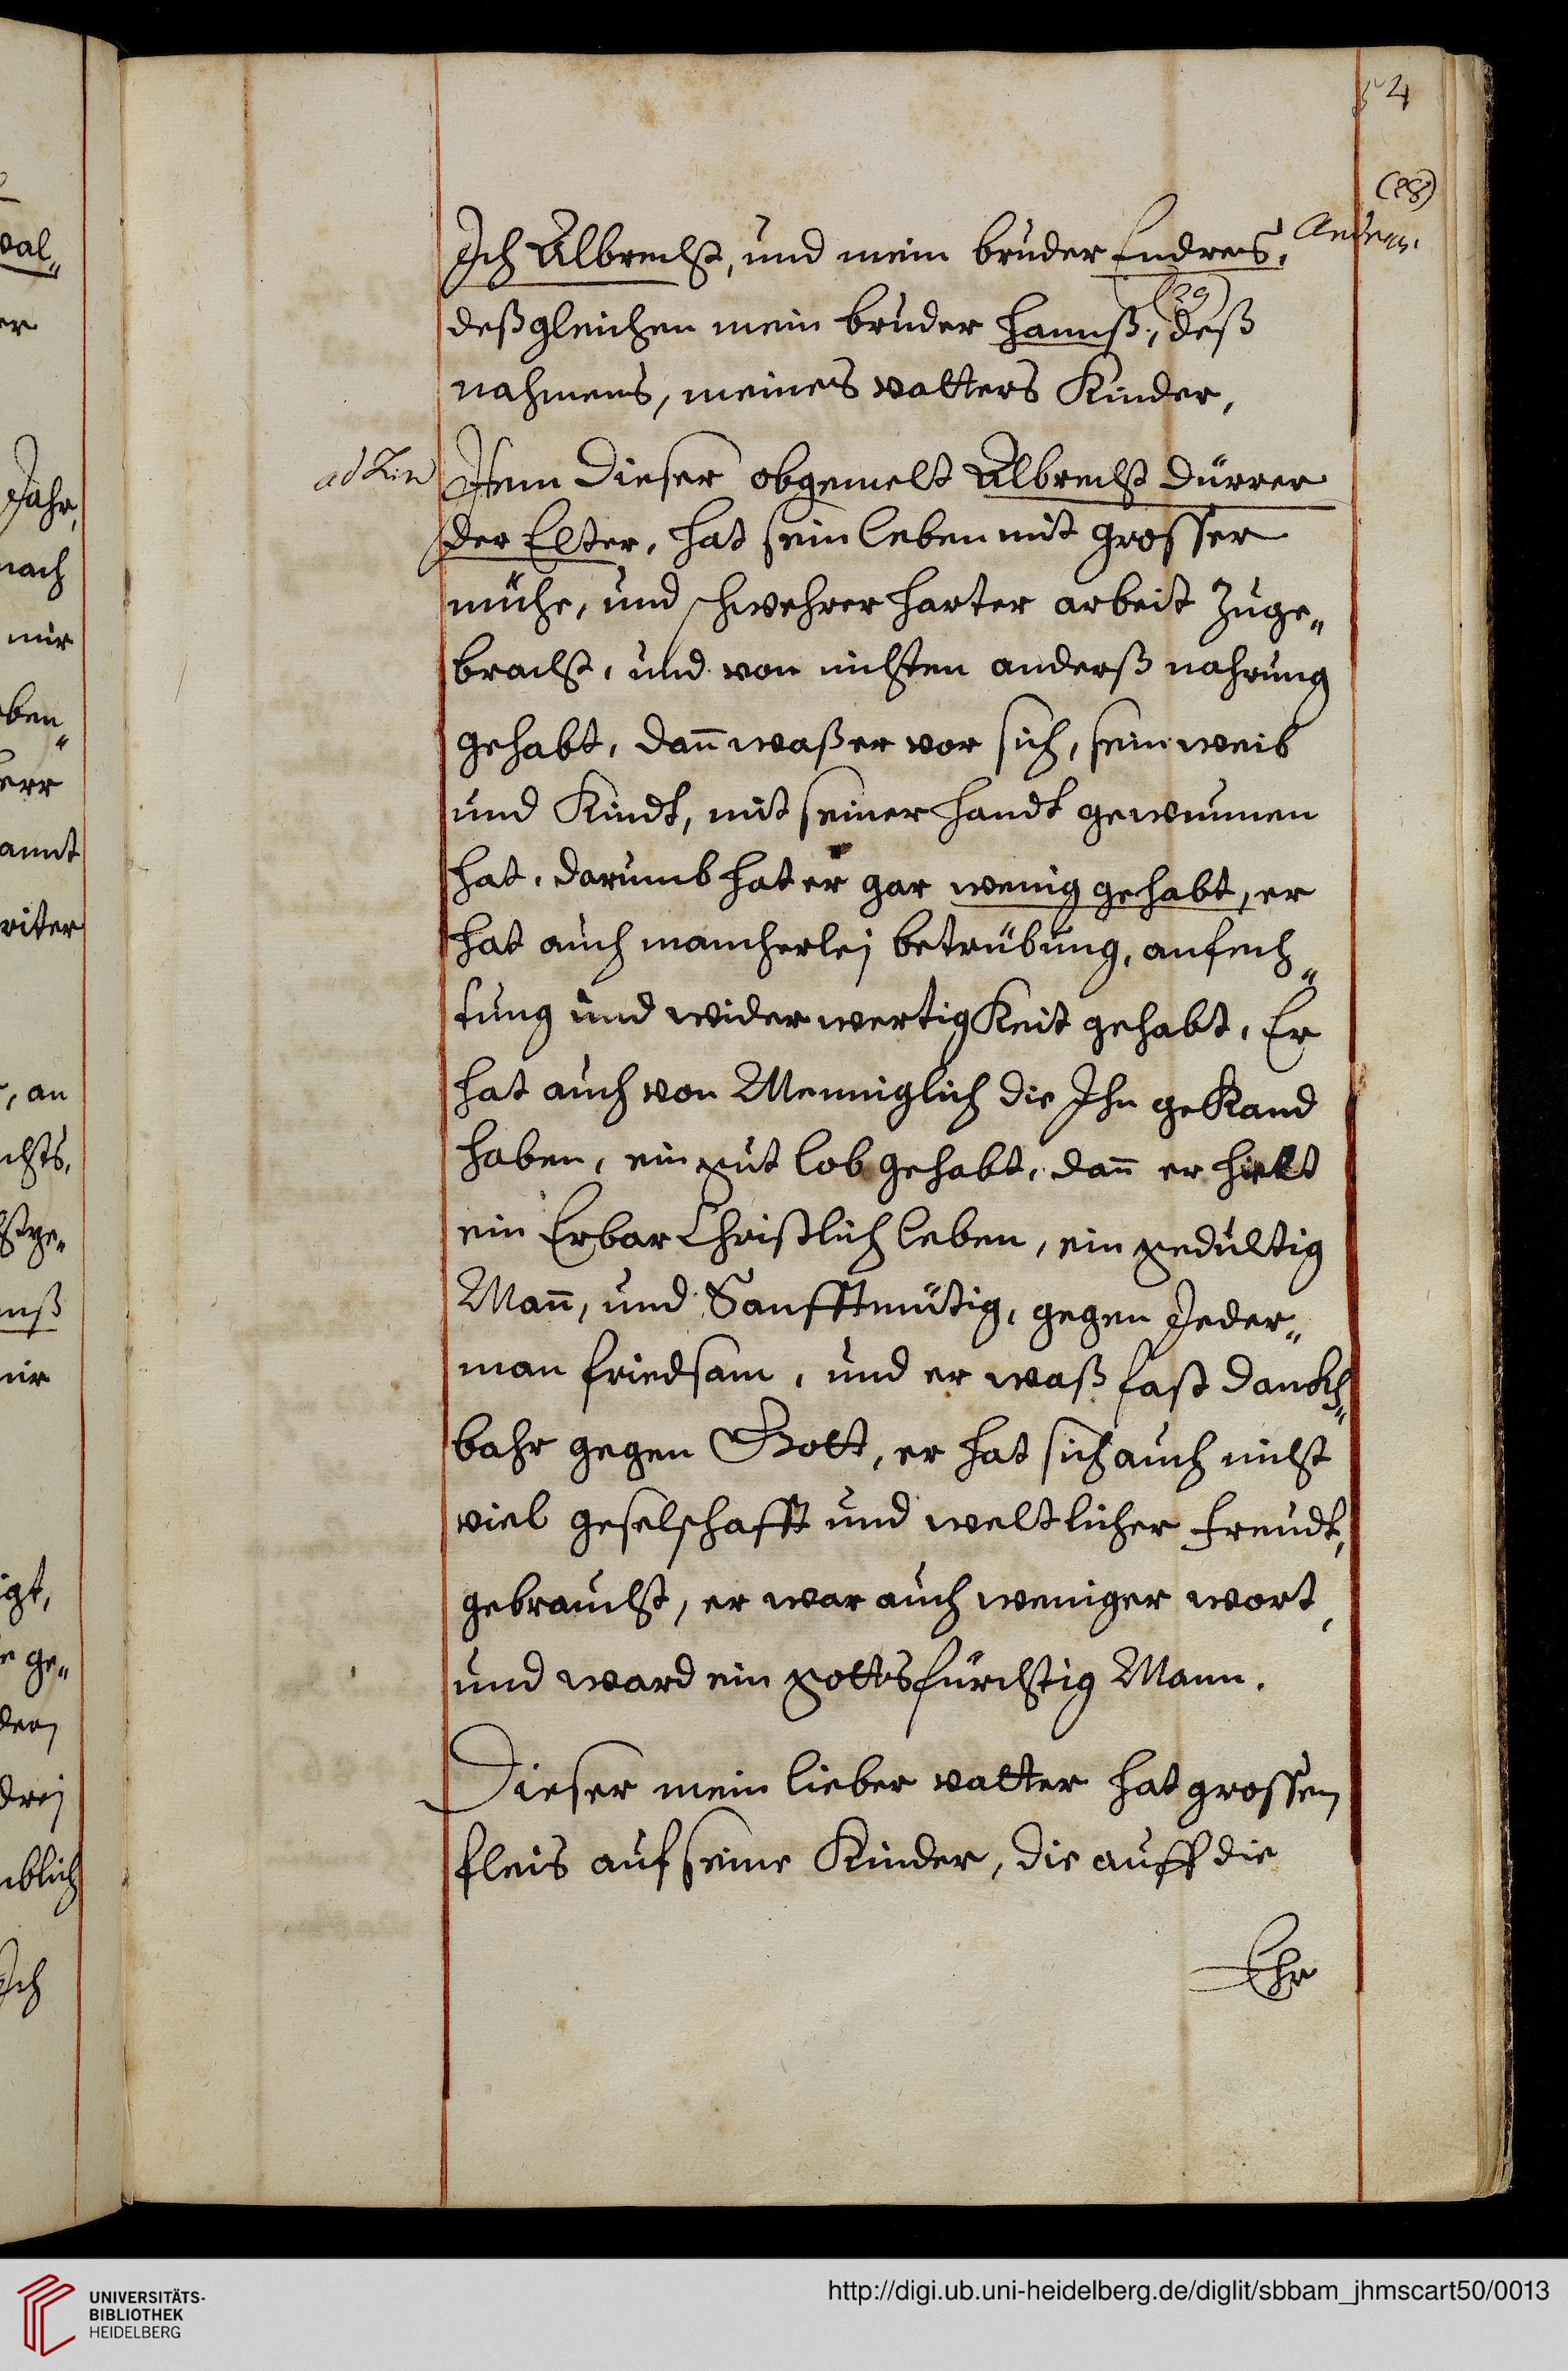 54
(28)
Ich Albrecht, und mein bruder Endres,
(29)
deßgleichen mein bruder Hannß, deß
nahmens, meines vatters Kinder,
Item dieser obgemelt Albrecht Dürrer
der Elter, hat sein leben mit grosser
mühe, und schwehrer harter arbeit zuge„
bracht, und von nichten anderß nahrung
gehabt, dañ waß er vor sich, sein weib
und Kindt, mit seiner handt gewunnen
hat, darumb hat er gar wenig gehabt, er
hat auch mancherlej betrübung, anfech„
tung und widerwertigkeit gehabt, Er
hat auch von Menniglich die Ihn gekand
haben, ein gut lob gehabt, dañ er hielt
ein Erbar Christlich leben, ein gedultig
Mañ, und Sanfftmütig, gegen Jeder„
man friedsam, und er waß fast danckh„
bahr gegen Gott, er hat sich auch nicht
viel geselschafft und weltlicher freudt,
gebraucht, er war auch weniger wort,
und ward ein gottsfürchtig Mann.
Dieser mein lieber vatter hat grossen
fleis auf seine Kinder, die auff die
Ehr
val„
er
Jahr,
nach
mir
ben„
err
annt
riter
, an
chts,
nß
mir
igt,
ge„
drej
blich
Ich
UNIVERSITÄTS-
BIBLIOTHEK
HEIDELBERG
http://digi.ub.uni-heidelberg.de/diglit/sbbam_jhmscart50/0013